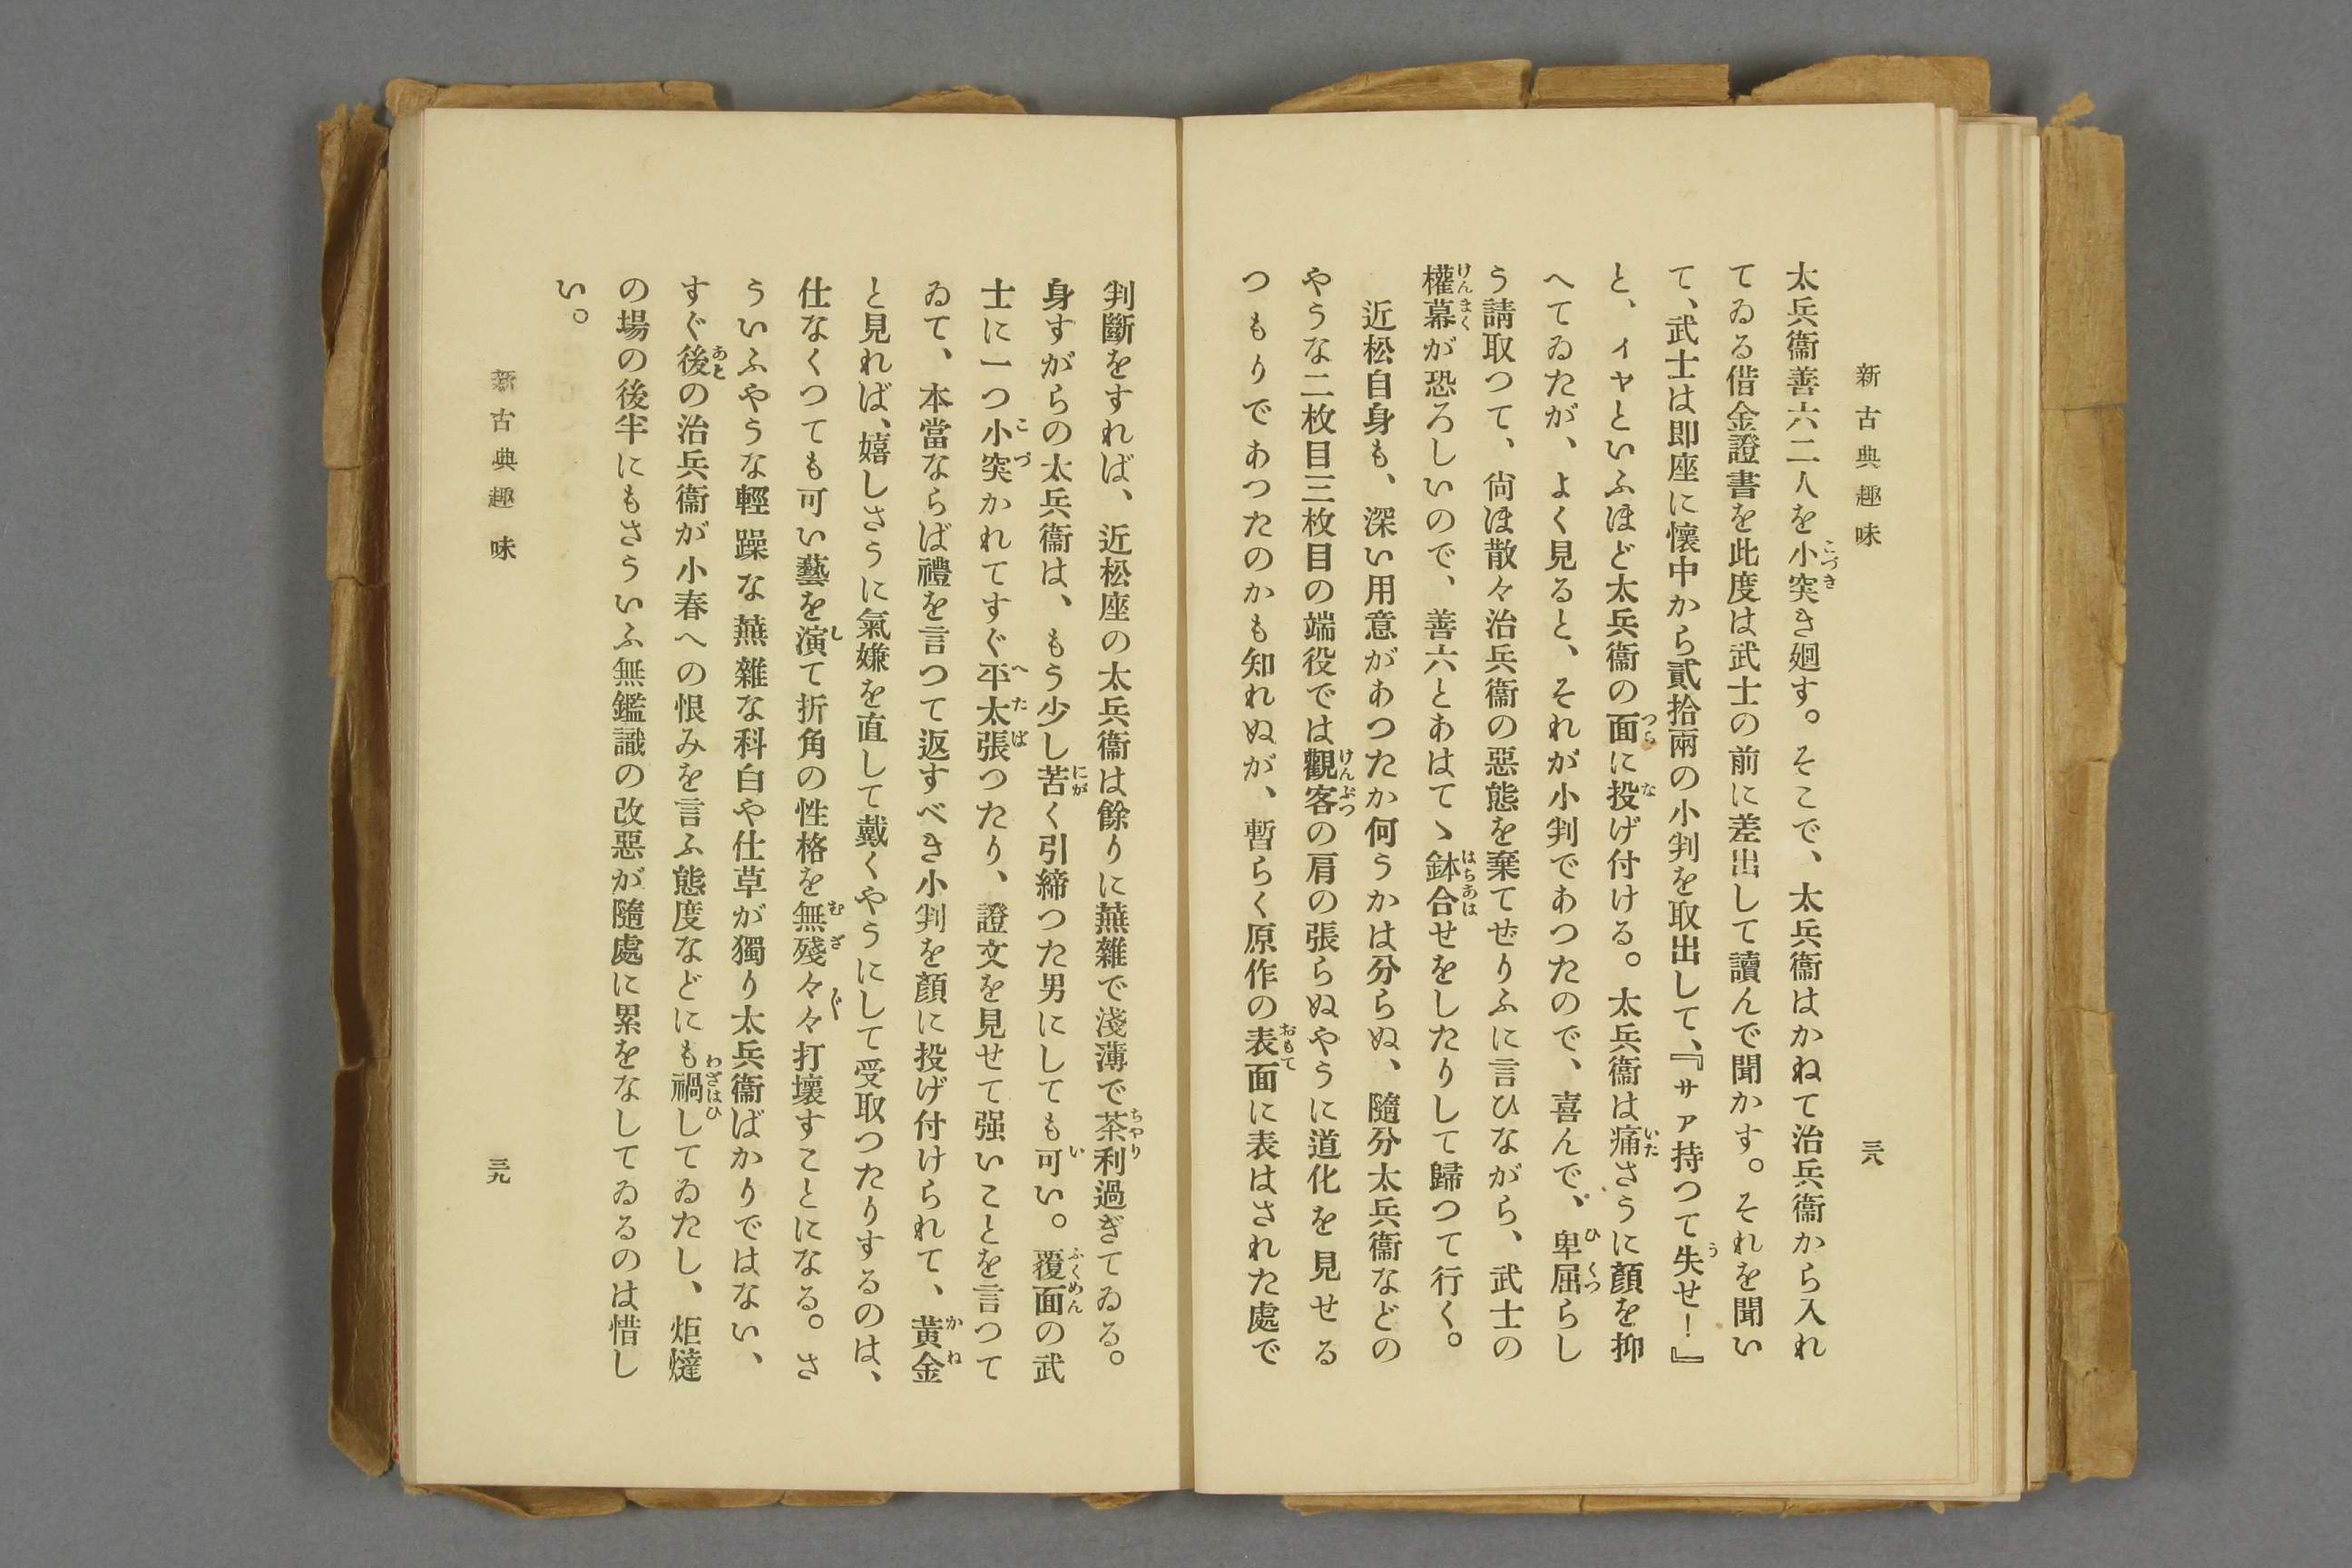 新古典趣味
三八
太兵衞善六二人を小突き廻す。そこで、太兵衞はかねて治兵衞から入れ
てゐる借金證書を此度は武士の前に差出して讀んで聞かす。それを聞い
て、武士は即座に懷中から貳拾兩の小判を取出して、『サァ持つて失せ！』
と、ィヤといふほど太兵衞の面に投げ付ける。太兵衞は痛さうに顏を抑
へてゐたが、よく見ると、それが小判であつたので、喜んで、卑屈らし
う請取つて、尙ほ散々治兵衞の惡態を棄てぜりふに言ひながら、武士の
權幕が恐ろしいので、善六とあはてゝ鉢合せをしたりして歸つて行く。
近松自身も、深い用意があつたか何うかは分らぬ、隨分太兵衞などの
やうな二枚目三枚目の端役では觀客の肩の張らぬやうに道化を見せる
つもりであつたのかも知れぬが、暫らく原作の表面に表はされた處で
判斷をすれば、近松座の太兵衞は餘りに蕪雜で淺薄で茶利過ぎてゐる。
身すがらの太兵衞は、もう少し苦く引締つた男にしても可い。覆面の武
士に一つ小突かれてすぐ平太張つたり、證文を見せて强いことを言つて
ゐて、本當ならば禮を言つて返すべき小判を顏に投げ付けられて、黄金
と見れば、嬉しさうに氣嫌を直して戴くやうにして受取つたりするのは、
仕なくつても可い藝を演て折角の性格を無殘々々打壞すことになる。さ
ういふやうな輕躁な蕪雜な科白や仕草が獨り太兵衞ばかりではない、
すぐ後の治兵衞が小春への恨みを言ふ態度などにも禍してゐたし、炬燵
の場の後半にもさういふ無鑑識の改惡が隨處に累をなしてゐるのは惜し
い。
新古典趣味
三九